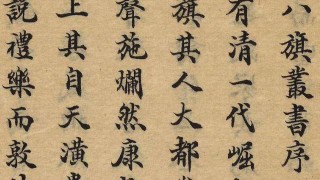 八旗叢書序
有清一代崛
旗其人大都
聲施爛然康
上其自天潢
說禮樂而敦